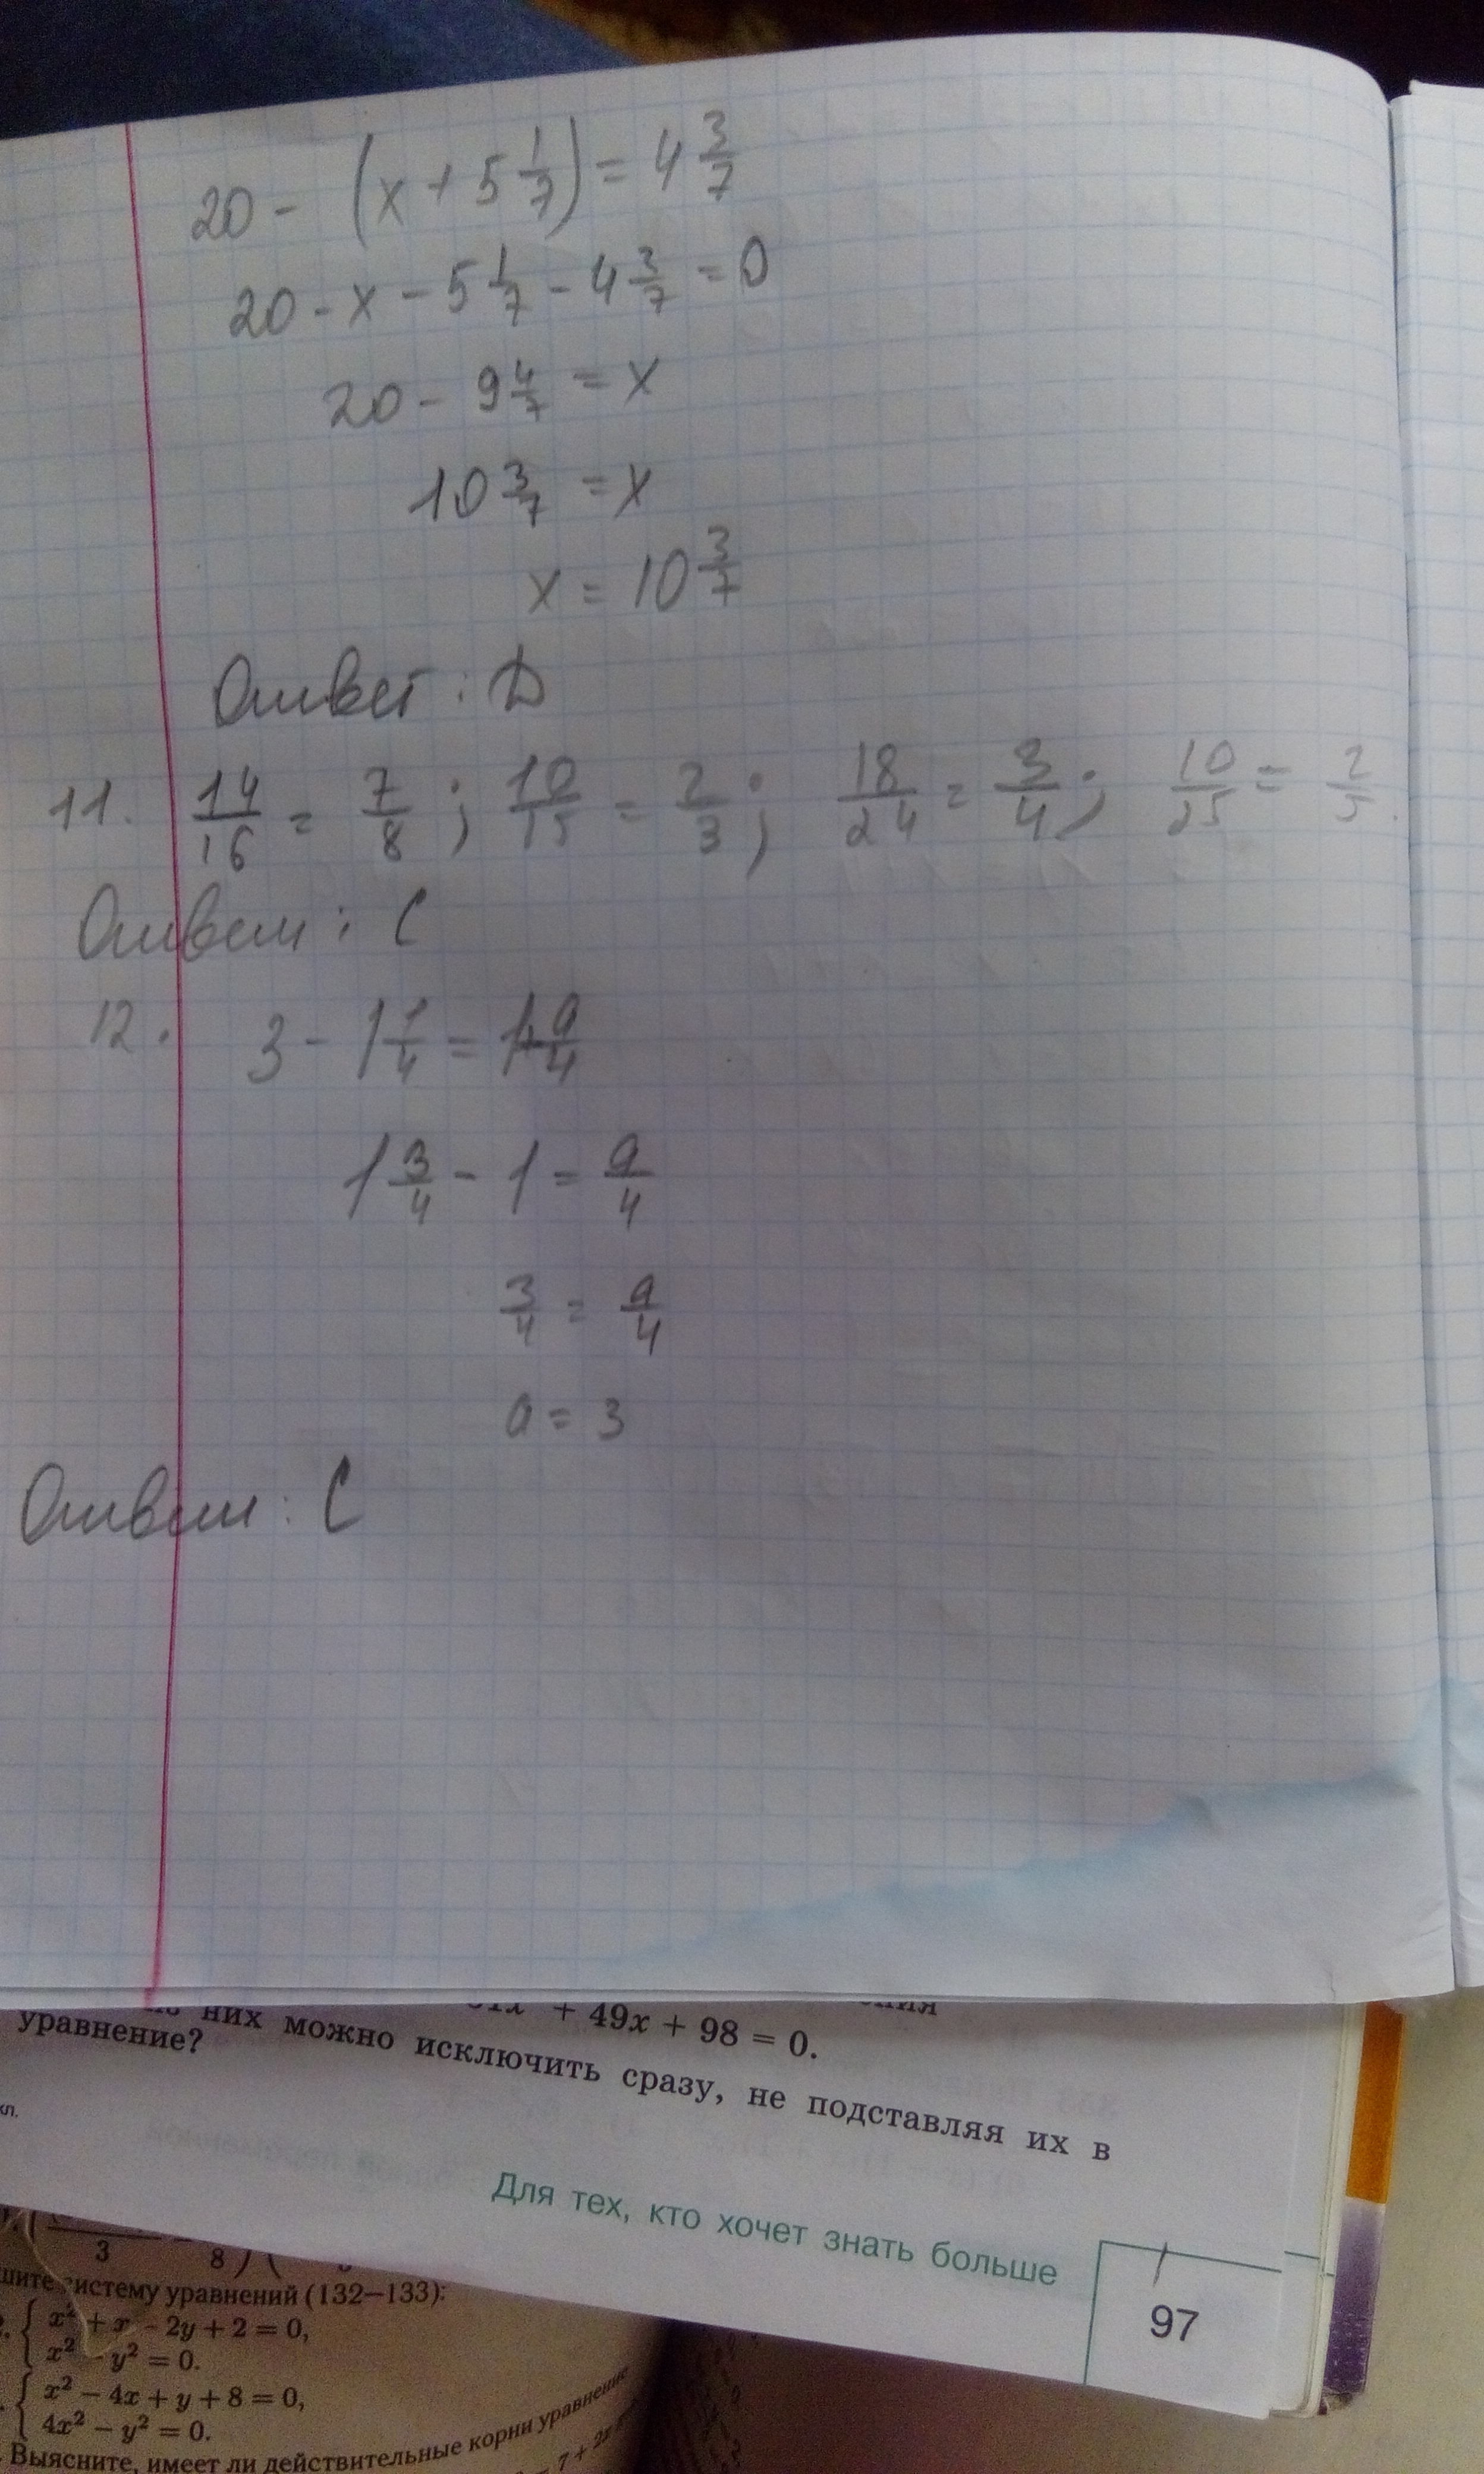 20 - (x + 5 1/7) = 4 3/7
20 - x - 5 1/7 - 4 3/7 = 0
20 - 9 4/7 = x
10 3/7 = x
x = 10 3/7
Ответ : D
11. 14/16 = 7/8 ; 10/15 = 2/3 ; 18/24 = 3/4 ; 10/25 = 2/5.
Ответ : C
12. 3 - 1 1/4 = 1 + a/4
1 3/4 - 1 = a/4
3/4 = a/4
a = 3
Ответ : C
+ 49x + 98 = 0.
них можно исключить сразу, не подставляя их в
уравнение?
кл.
Для тех, кто хочет знать больше
97
3 8
систему уравнений (132—133):
x² + x - 2y + 2 = 0,
x² - y² = 0.
x² - 4x + y + 8 = 0,
4x² - y² = 0.
Выясните, имеет ли действительные корни уравнение